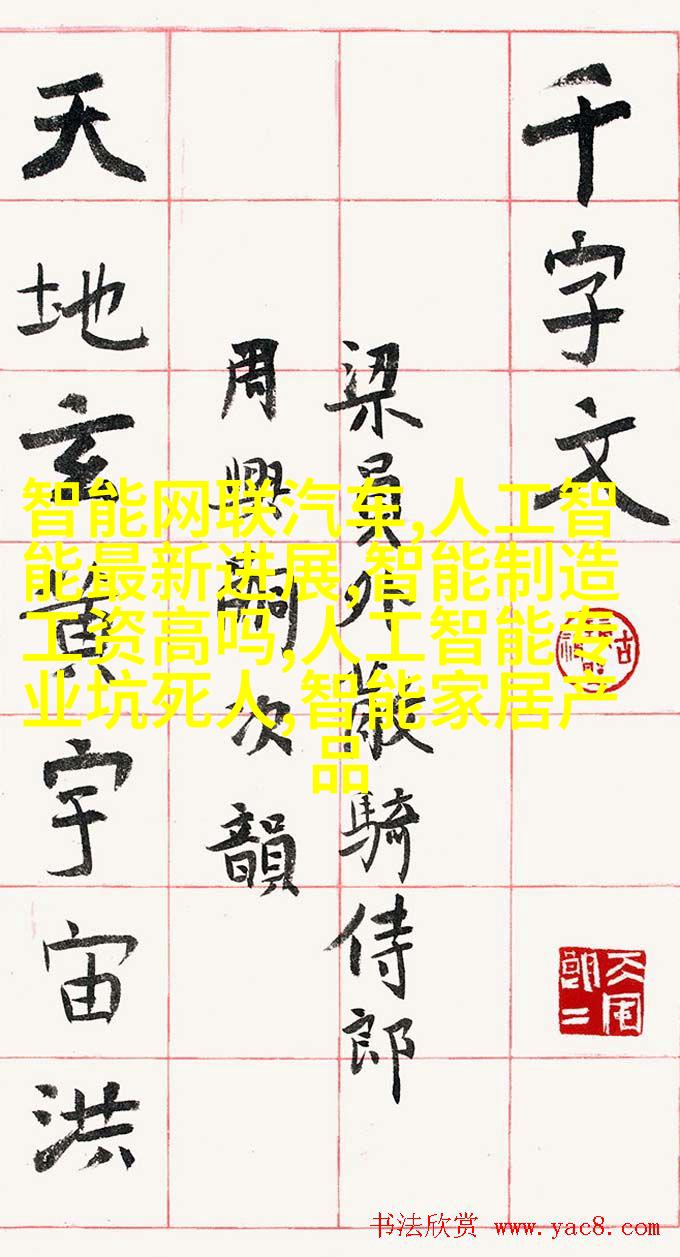 千字文
梁員外散騎侍郎
周興嗣次韻
天地玄黄宇宙洪
智能网联汽车,人工智
能最新进展,智能制造
工资高吗,人工智能专
业坑死人,智能家居产
品
书法欣赏 www.yac8.com